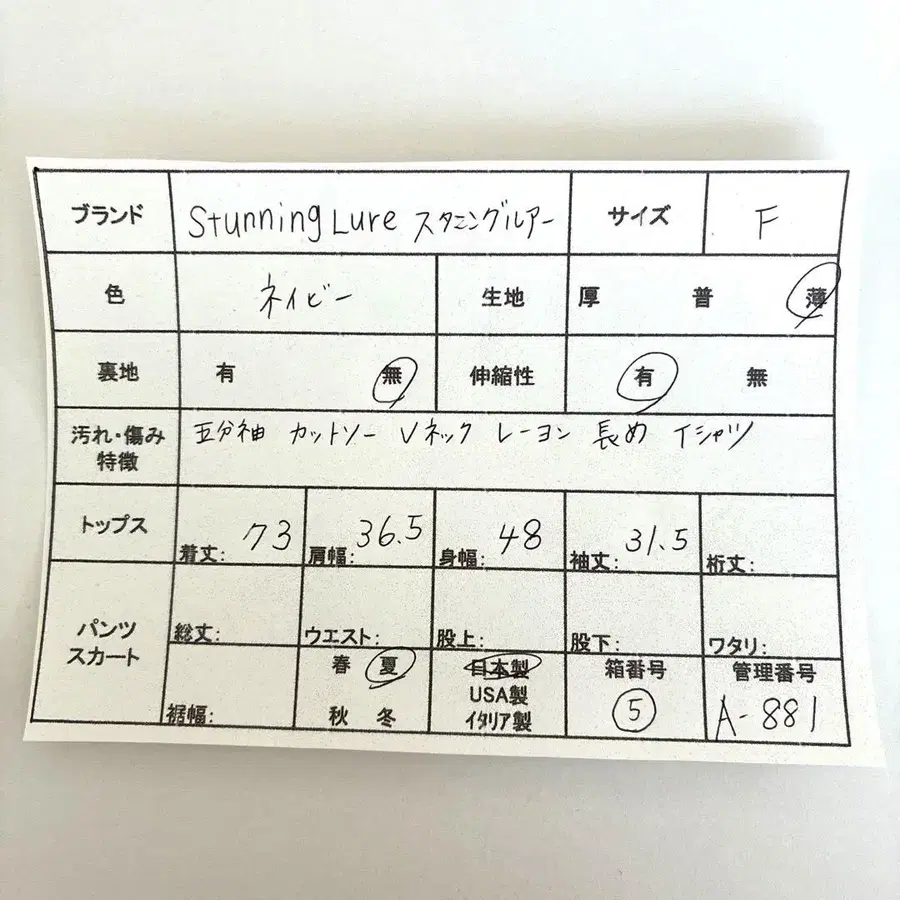 ブランド Stunning Lure スタニングルアー サイズ F
色 ネイビー 生地 厚 普 薄
裏地 有 無 伸縮性 有 無
汚れ・傷み 五分袖 カットソー Vネック レーヨン 長め Tシャツ
特徴
トップス 着丈: 73 肩幅: 36.5 身幅: 48 袖丈: 31.5 裄丈:
パンツ 総丈: ウエスト: 股上: 股下: ワタリ:
スカート 春 夏 日本製 箱番号 管理番号
USA製
裾幅: 秋 冬 イタリア製 5 A-881